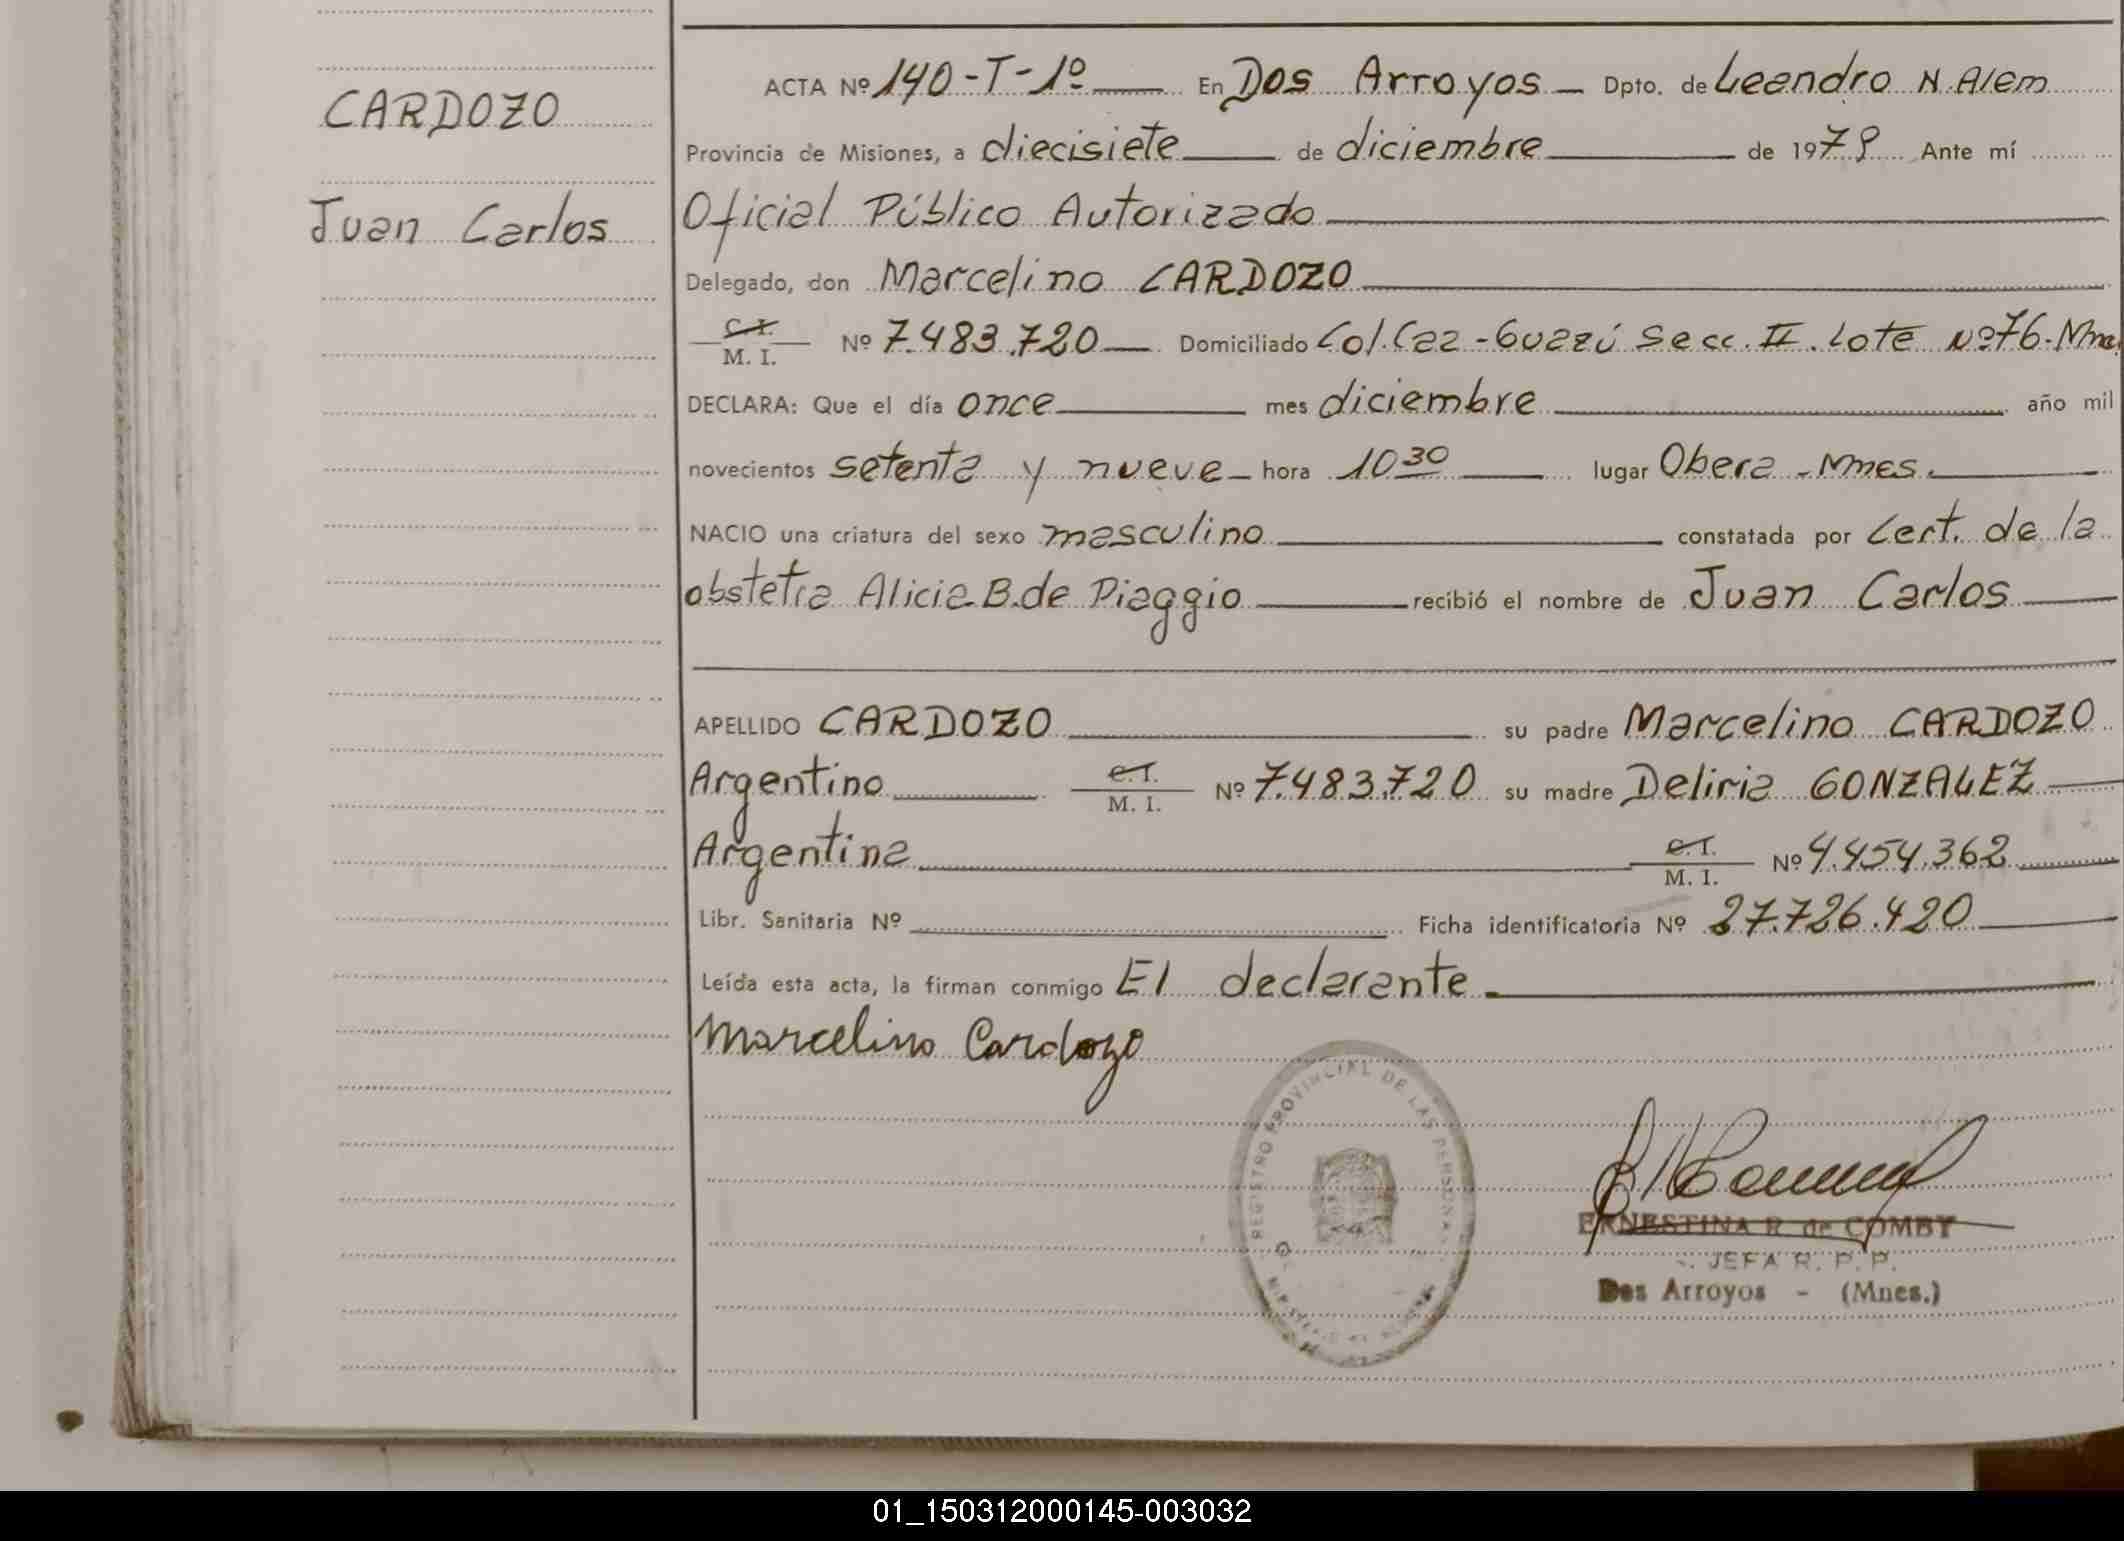 CARDOZO
Juan Carlos
ACTA Nº 140-T-1º En Dos Arroyos Dpto. de Leandro N. Alem
Provincia de Misiones, a diecisiete de diciembre de 1979 Ante mí
Oficial Público Autorizado
Delegado, don Marcelino CARDOZO
C. I.
M. I.
Nº 7.483.720 Domiciliado Col. Caa-Guazú Secc. II. Lote Nº 76.
DECLARA: Que el día once mes diciembre año mil
novecientos setenta y nueve hora 10 30 lugar Obera - Mnes.
NACIO una criatura del sexo masculino constatada por Cert. de la
obstetra Alicia B. de Piaggio recibió el nombre de Juan Carlos
APELLIDO CARDOZO su padre Marcelino CARDOZO
Argentino C. I. Nº 7.483.720 su madre Deliria GONZALEZ
M. I.
Argentina C. I. Nº 4.454.362
M. I.
Libr. Sanitaria Nº Ficha identificatoria Nº 27.726.420
Leída esta acta, la firman conmigo El declarante
Marcelino Cardozo
REGISTRO PROVINCIAL DE LAS PERSONAS
ERNESTINA R. de COMBY
JEFA R. P. P.
Dos Arroyos - (Mnes.)
01_150312000145-003032